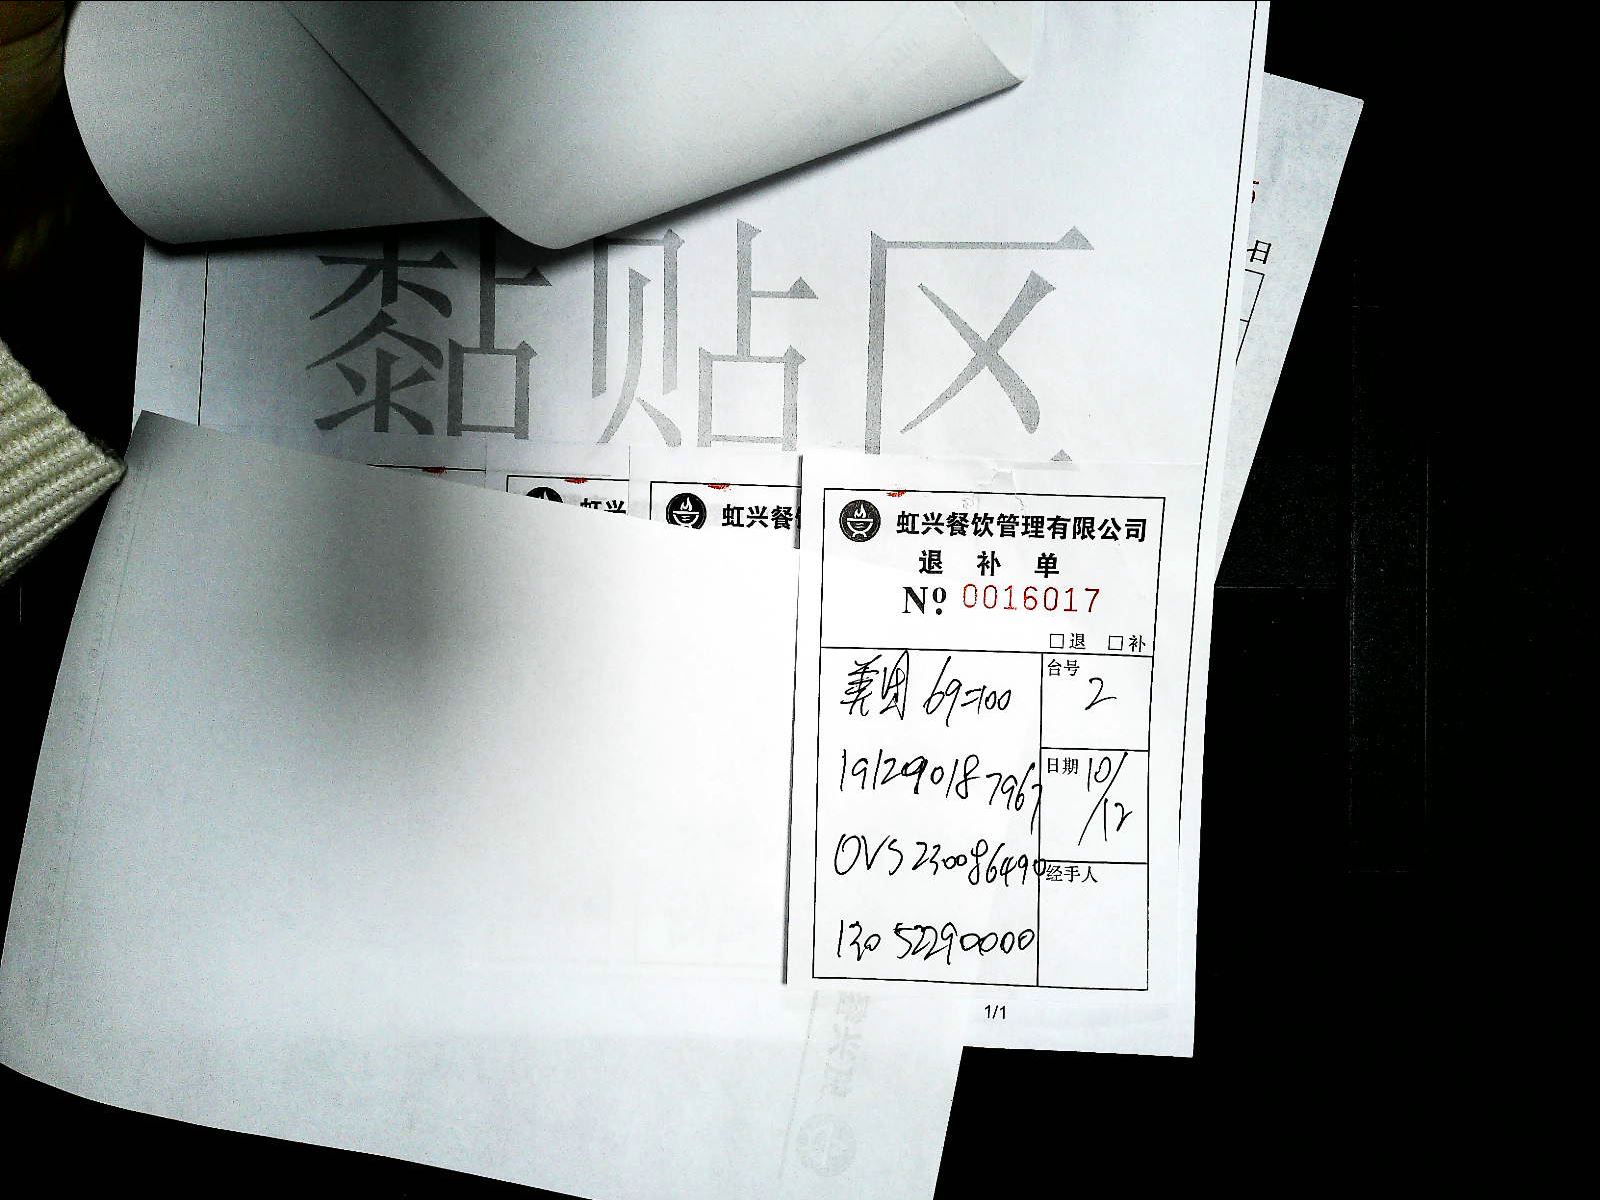 黏贴区
虹兴
虹兴餐
虹兴餐饮管理有限公司
退 补 单
Nº. 0016017
□退 □补
美团 69=100
台号 2
191290187967
日期 10/12
OVS2300864990
经手人
130 52290000
1/1